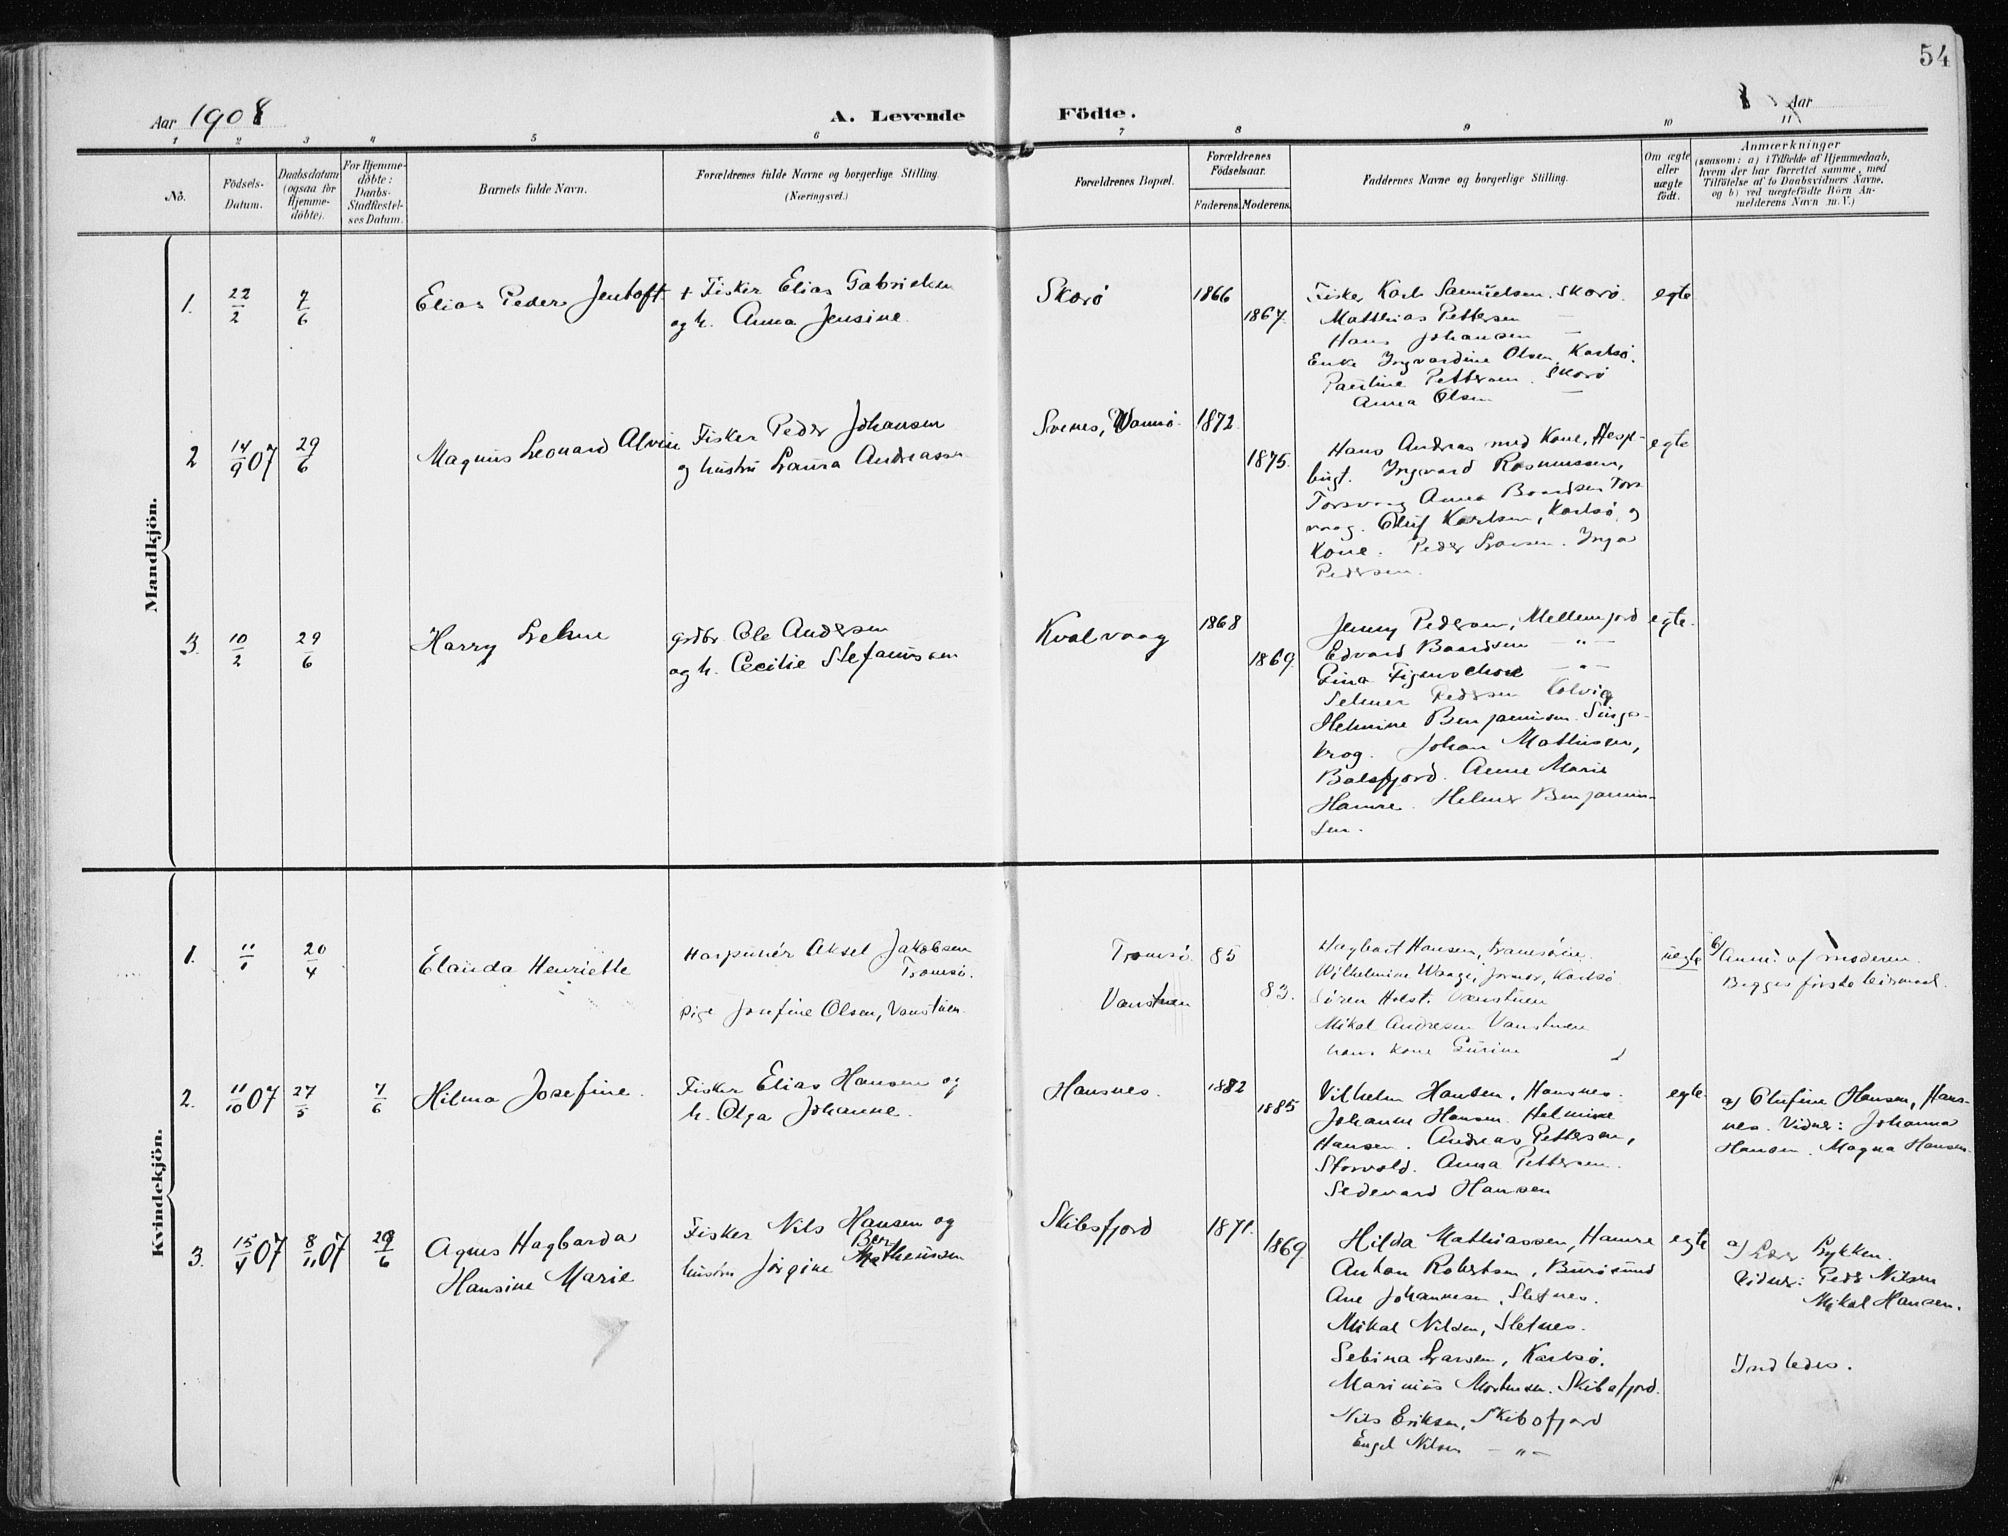 54
Aar 1908
A. Levende
Födte.
Aar
1 2 3 4 5 6 7 8 9 10 11
No.
Födsels-Datum.
Daabsdatum (ogsaa for Hjemme-döbte).
For Hjemme-döbte: Daabs-Stadfæstel-ses Datum.
Barnets fulde Navn.
Forældrenes fulde Navne og borgerlige Stilling.
(Næringsvei.)
Forældrenes Bopæl.
Forældrenes Födselsaar.
Faderens. Moderens.
Faddernes Navne og borgerlige Stilling.
Om ægte eller uægte födt.
Anmærkninger
(saasom: a) i Tilfælde af Hjemmedaab,
hvem der har forrettet samme, med
Tilföielse af to Daabsvidners Navne,
og b) ved uægtefödte Börn An-
melderens Navn m. V.)
Mandkjön.
1. 22/2 7/6 Elias Peder Jentoft
+ Fisker Elias Gabrielsen
og h. Anna Jensine.
Skorö 1866 1867.
Fisker Karl Samuelsen. Skorö.
Matthias Pettersen —
Hans Johansen —
Enke Ingvardine Olsen, Karlsö.
Pauline Pettersen. Skorö
Anna Olsen —
egte
2 14/9 07 29/6 Magnus Leonard Alvin
Fisker Peder Johansen
og hustru Laura Andreassen
Svenes, Vannö. 1872. 1875.
Hans Andreas med Kone, Hesje-
bugt. Ingvard Rasmussen,
Torsvaag Anna Baardsen Tors
vaag. Oluf Karlsen, Karlsö, og
Kone. Peder Larsen. Inga
Pedersen.
egte
3. 10/2 29/6 Harry Selme
grdbr Ole Andersen
og h. Cecilie Stefanussen
Kvalvaag 1868 1869.
Jenny Pedersen, Mellemjord
Edvard Baardsen — " —
Lina Figenschou — " —
Selmer Pedersen Kolvig
Helmine Benjaminsen.
krog. Johan Mathisen,
Balsfjord. Anne Marie
Hamre. Helmer Benjamin-
sen.
egte.
Kvindekjön.
1. 11/1 20/4 Elanda Henriette
Harpunér Aksel Jakobsen
Tromsö.
pige Josefine Olsen, Vanstuen.
Tromsö. 85
Vanstuen 83.
Hagbart Hansen,
Wilhelmine Waage, Karlsö
Sören Holst. Vanstuen
Mikal Andresen Vanstuen
hans Kone Gurine
uegte
b) Anm. af moderen.
Begges förste leiermaal.
2. 11/10 07 27/5 7/6 Hilma Josefine.
Fisker Elias Hansen og
h. Olga Johanne.
Hansnes. 1882 1885
Vilhelm Hansen, Hansnes.
Johanne Hansen. Helmine
Hansen. Andreas Pettersen,
Storvold. Anna Pettersen.
Sedevard Hansen
egte.
a) Olufine Hansen, Hans-
nes. Vidner: Johanna
Hansen. Magna Hansen.
3. 15/4 07 8/11 07 29/6 Agnes Hagbarda
Hansine Marie
Fisker Nils Hansen og
Ber
hustru Jörgine Matheussen
Skibsfjord 1871. 1869
Hilda Mathiassen, Hamre
Anton Robertsen, Burösund
Ane Johannesen, Sletnes.
Mikal Nilsen, Sletnes.
Sebina Larsen, Karlsö.
Marinius Mortensen. Skibsfjord.
Nils Eriksen, Skibsfjord
Engel Nilsen — " —
egte
a) Lykken.
Vidner: Peder Nilsen
Mikal Hansen.
Indledes.